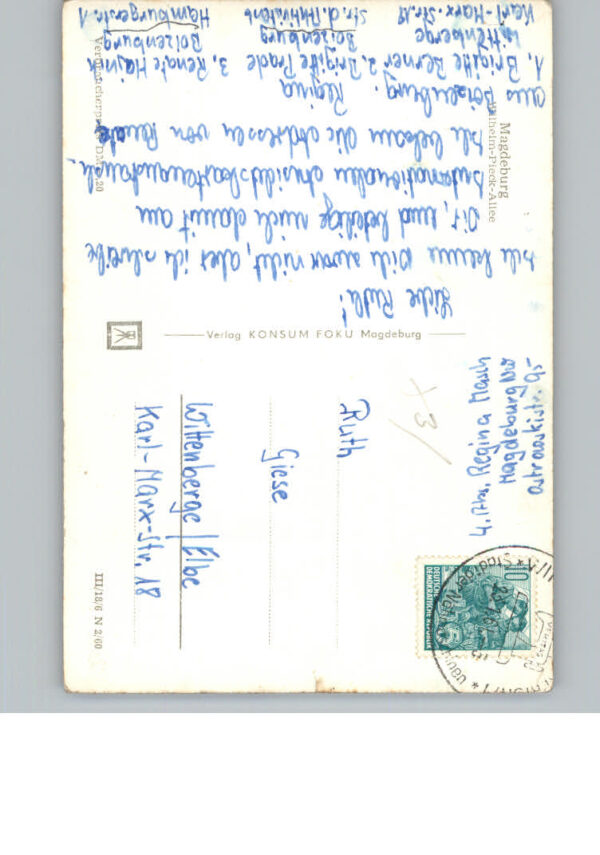 Magdeburg
Wilhelm-Pieck-Allee
Liebe Ruth!
Ich kenne Dich zwar nicht, aber ich schreibe
Dir, und beteilige mich damit am
internationalen Ansichtskartenaustausch.
Ich bekam die Adressen von Renate
aus Boizenburg. Regina
1. Brigitte Berner 2. Brigitte Prade 3. Renate
Wittenberge Boizenburg Boizenburg
Karl-Marx-Str. 18 Str. d. Aktivisten Hamburgerstr. 1
4. Regina
Magdeburg
Verbraucherpreis DM 0,20
Verlag KONSUM FOKU Magdeburg
10
DEUTSCHE
DEMOKRATISCHE REPUBLIK
Ruth
Giese
Wittenberge / Elbe
Karl-Marx-Str. 18
III/18/6 N 2/60